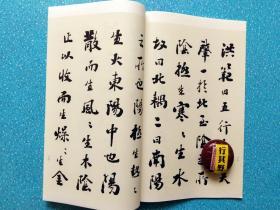 洪範曰五行天
肇一於北
陰極生寒〻生水
故曰北耦二曰南陽
也陽極生
生火東陽中也陽
散而生風〻生木陰
止以收而生燥〻生金
行其野